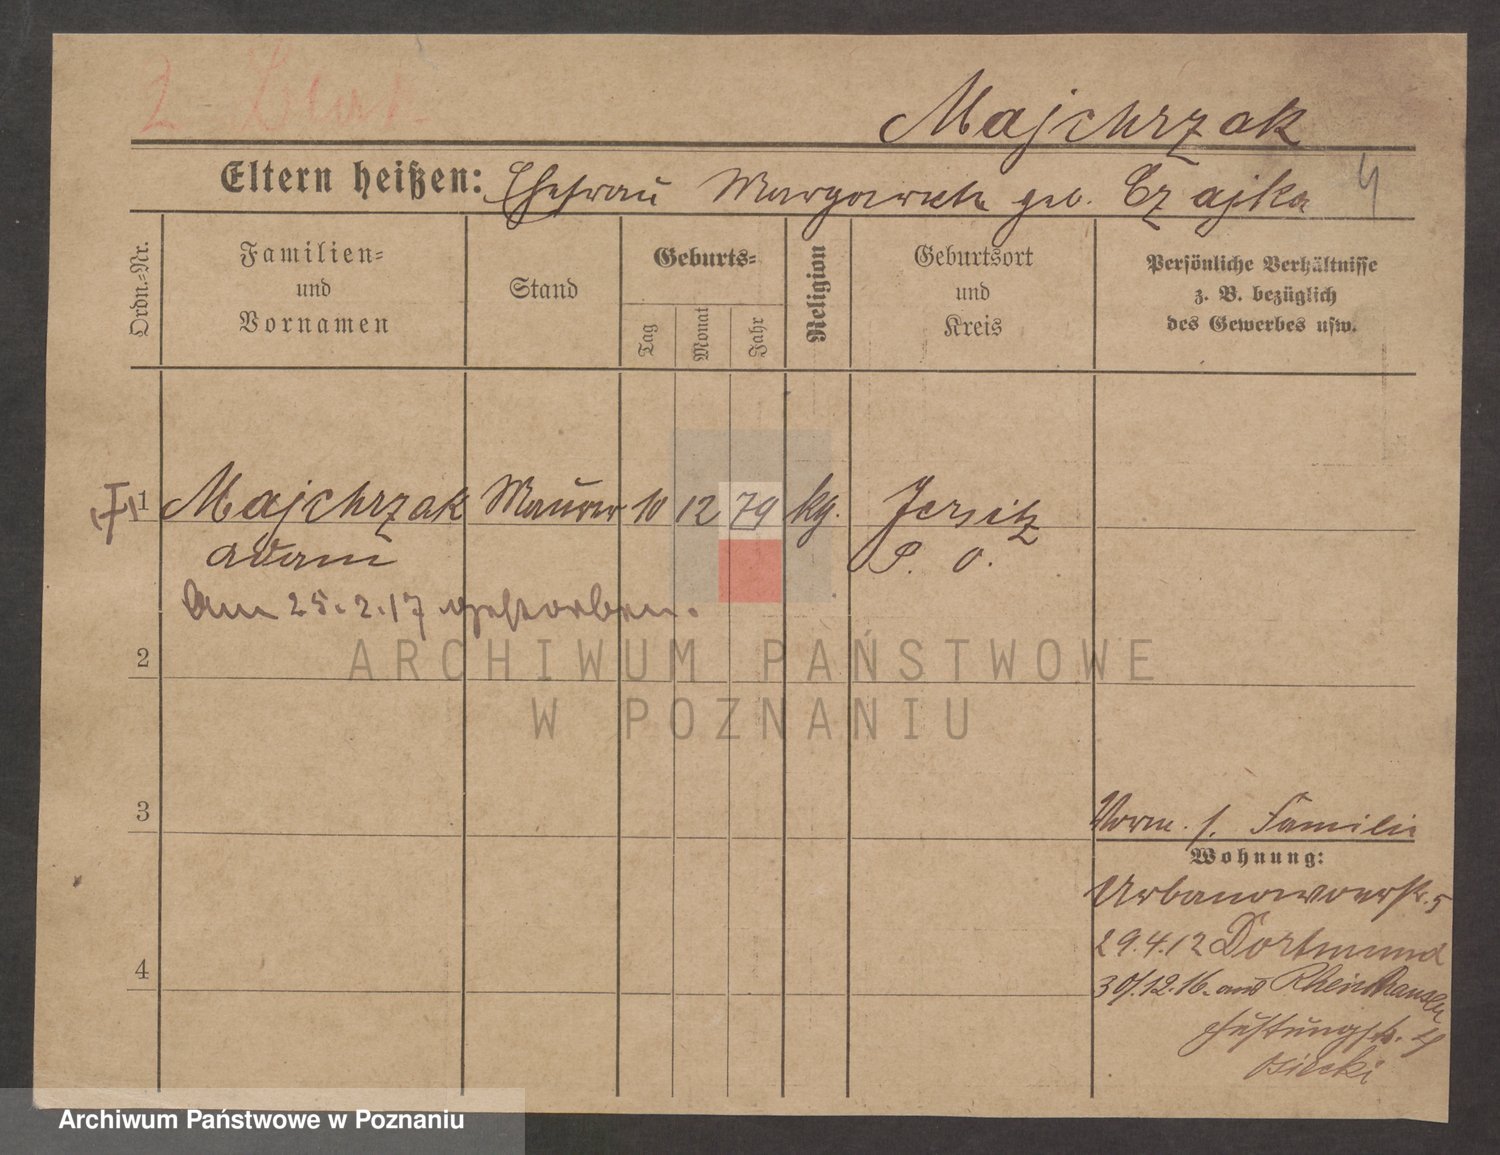 2 Blatt
Majchrzak
Eltern heißen: Ehefrau Margarete geb. Czajka
4
Ordn.=Nr.
Familien=
und
Vornamen
Stand
Geburts=
Tag
Monat
Jahr
Religion
Geburtsort
und
Kreis
Persönliche Verhältnisse
z. B. bezüglich
des Gewerbes usw.
1 Majchrzak Maurer 10 12 79 kg. Jersitz
Adam P. O.
Am 25.2.17 gestorben.
2
3
4
Vorm. s. Familie
Wohnung:
Urbanowoerstr. 5
29.4.12 Dortmund
30.12.16. aus Rheinhausen
4
Osiecki
ARCHIWUM PAŃSTWOWE
W POZNANIU
Archiwum Państwowe w Poznaniu